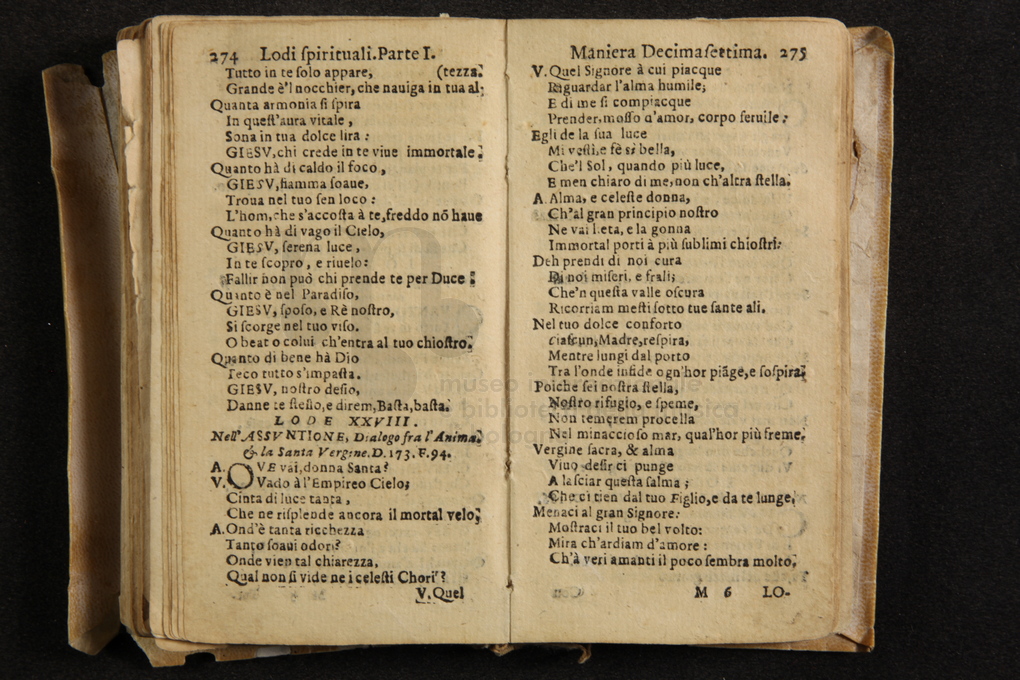 274 Lodi ſpirituali.Parte I.
Tutto in te ſolo appare, (tezza.
Grande è'l nocchier, che nauiga in tua al-
Quanta armonia ſi ſpira
In queſt'aura vitale,
Sona in tua dolce lira:
GIESV, chi crede in te viue immortale.
Quanto hà di caldo il foco,
GIESV, fiamma ſoaue,
Troua nel tuo ſen loco:
L'hom, che s'accoſta à te, freddo nõ haue
Quanto hà di vago il Cielo,
GIESV, ſerena luce,
In te ſcopro, e riuelo:
Fallir non può chi prende te per Duce:
Quanto è nel Paradiſo,
GIESV, ſpoſo, e Rè noſtro,
Si ſcorge nel tuo viſo.
O beato colui ch'entra al tuo chioſtro.
Quanto di bene hà Dio
Teco tutto s'impaſta.
GIESV, noſtro deſio,
Danne te ſteſſo, e direm, Baſta, baſta.
LODE XXVIII.
Nell'ASSVNTIONE, Dialogo fra l'Anima,
& la Santa Vergine. D. 173. F. 94.
A. OVE vai, donna Santa?
V. Vado à l'Empireo Cielo;
Cinta di luce tanta,
Che ne riſplende ancora il mortal velo;
A. Ond'è tanta ricchezza
Tanto ſoaui odori?
Onde vien tal chiarezza,
Qual non ſi vide ne i celeſti Chori?
V. Quel
Maniera Decimaſettima. 275
V. Quel Signore à cui piacque
Riguardar l'alma humile;
E di me ſi compiacque
Prender, moſſo d'amor, corpo ſeruile:
Egli de la ſua luce
Mi veſtì, e fè sì bella,
Che'l Sol, quando più luce,
E men chiaro di me, non ch'altra ſtella.
A. Alma, e celeſte donna,
Ch'al gran principio noſtro
Ne vai lieta, e la gonna
Immortal porti à più ſublimi chioſtri:
Deh prendi di noi cura
Di noi miſeri, e frali;
Che'n queſta valle oſcura
Ricorriam meſti ſotto tue ſante ali.
Nel tuo dolce conforto
ciaſcun, Madre, reſpira,
Mentre lungi dal porto
Tra l'onde infide ogn'hor piãge, e ſoſpira,
Poiche ſei noſtra ſtella,
Noſtro rifugio, e ſpeme,
Non temerem procella
Nel minaccioſo mar, qual'hor più freme.
Vergine ſacra, & alma
Viuo deſir ci punge
A laſciar queſta ſalma;
Che ci tien dal tuo Figlio, e da te lunge.
Menaci al gran Signore:
Moſtraci il tuo bel volto:
Mira ch'ardiam d'amore:
Ch'à veri amanti il poco ſembra molto.
M 6 LO-